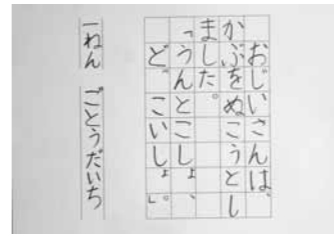 おじいさんは、
かぶをぬこうとし
ました。
「うんとこしょ、
どっこいしょ。」
一ねん ごとうだいち